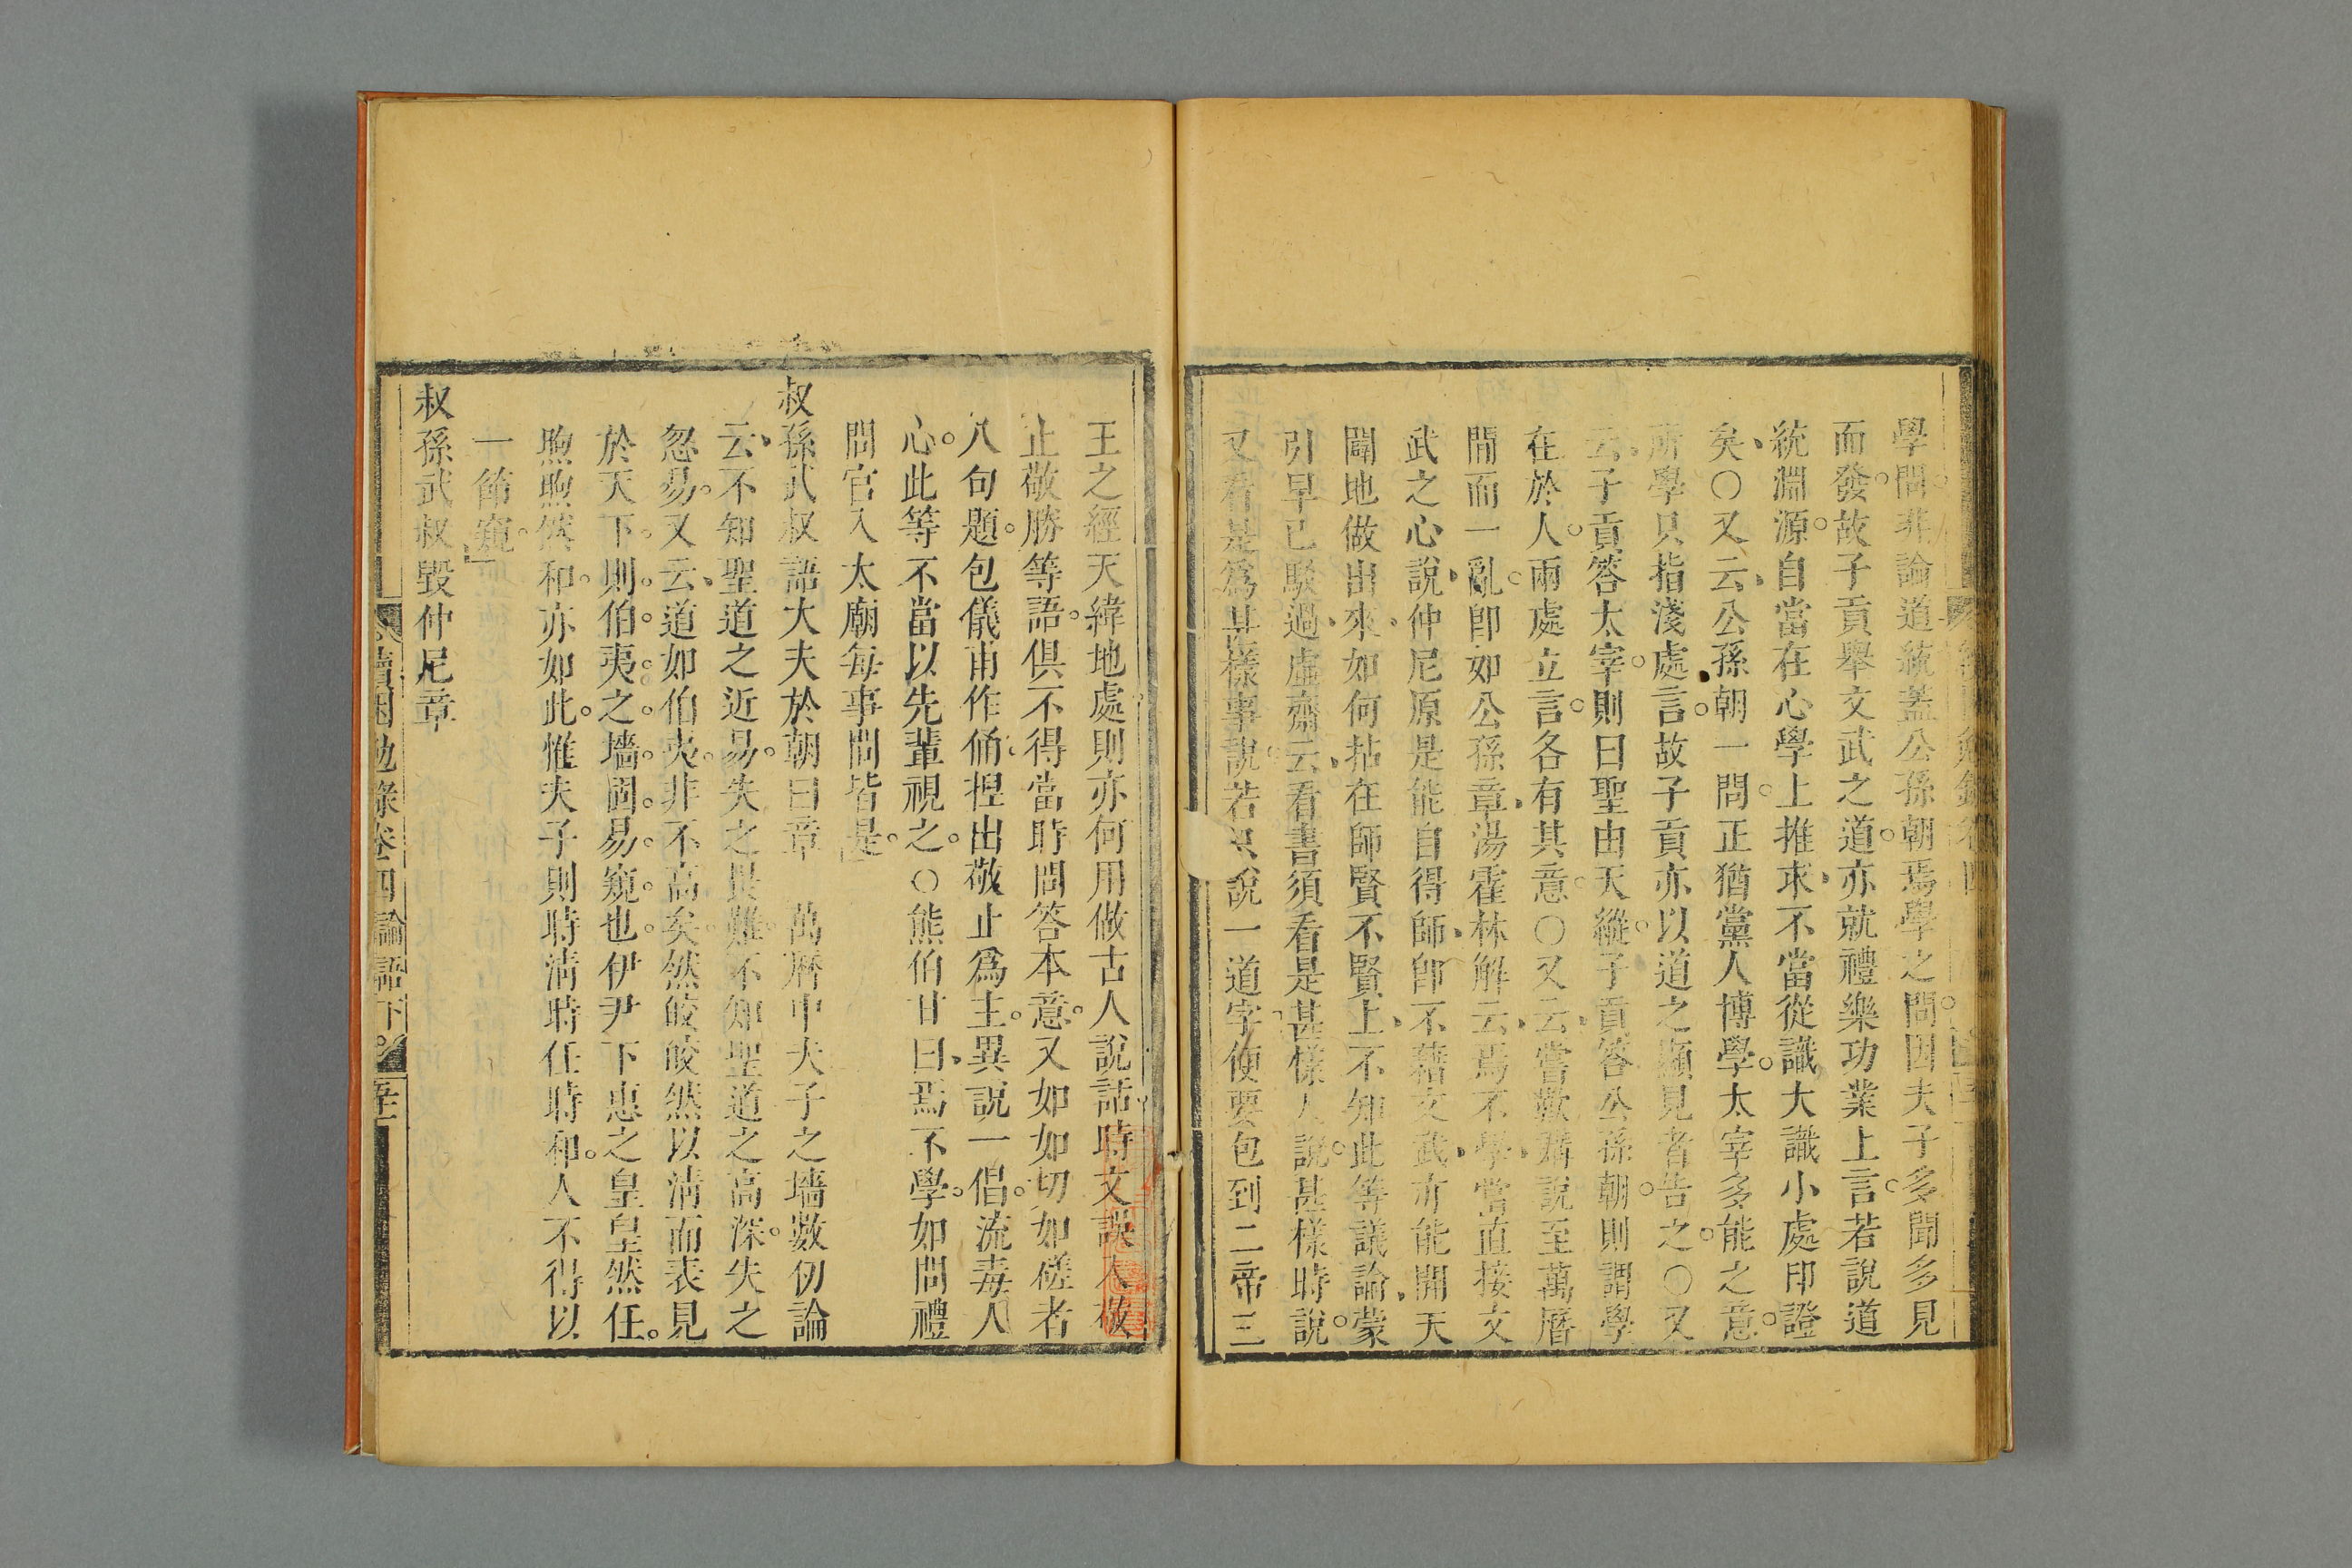 學問非論道統蓋公孫朝焉學之問因夫子多聞多見
而發故子貢舉文武之道亦就禮樂功業上言若說道
統淵源自當在心學上推求不當從識大識小處印證
矣○又云公孫朝一問正猶黨人博學太宰多能之意
所學只指淺處言故子貢亦以道之顯見者告之○又
云子貢答太宰則曰聖由天縱子貢答公孫朝則謂學
在於人兩處立言各有其意○又云嘗歎講說至萬曆
間而一亂卽如公孫章湯霍林解云焉不學當直接文
武之心說仲尼原是能自得師卽不藉文武亦能開天
闢地做出來如何拈在師賢不賢上不知此等議論蒙
引早已駁過虛齋云看書須看是甚樣人說甚樣時說
又看是爲甚樣事說若只說一道字便要包到二帝三
王之經天緯地處則亦何用做古人說話時文誤人敬
止敬勝等語俱不得當時問答本意又如如切如磋者
八句題包儀甫作俑捏出敬止爲主異說一倡流毒人
心此等不當以先輩視之○熊伯甘曰焉不學如問禮
問官入太廟每事問皆是
叔孫武叔語大夫於朝曰章 萬曆中夫子之墻數仞論
云不知聖道之近易失之畏難不知聖道之高深失之
忽易又云道如伯夷非不高矣然皎皎然以淸而表見
於天下則伯夷之墻固易窺也伊尹下惠之皇皇然任
煦煦然和亦如此惟夫子則時淸時任時和人不得以
一節窺
叔孫武叔毀仲尼章
續困勉錄卷四論語下